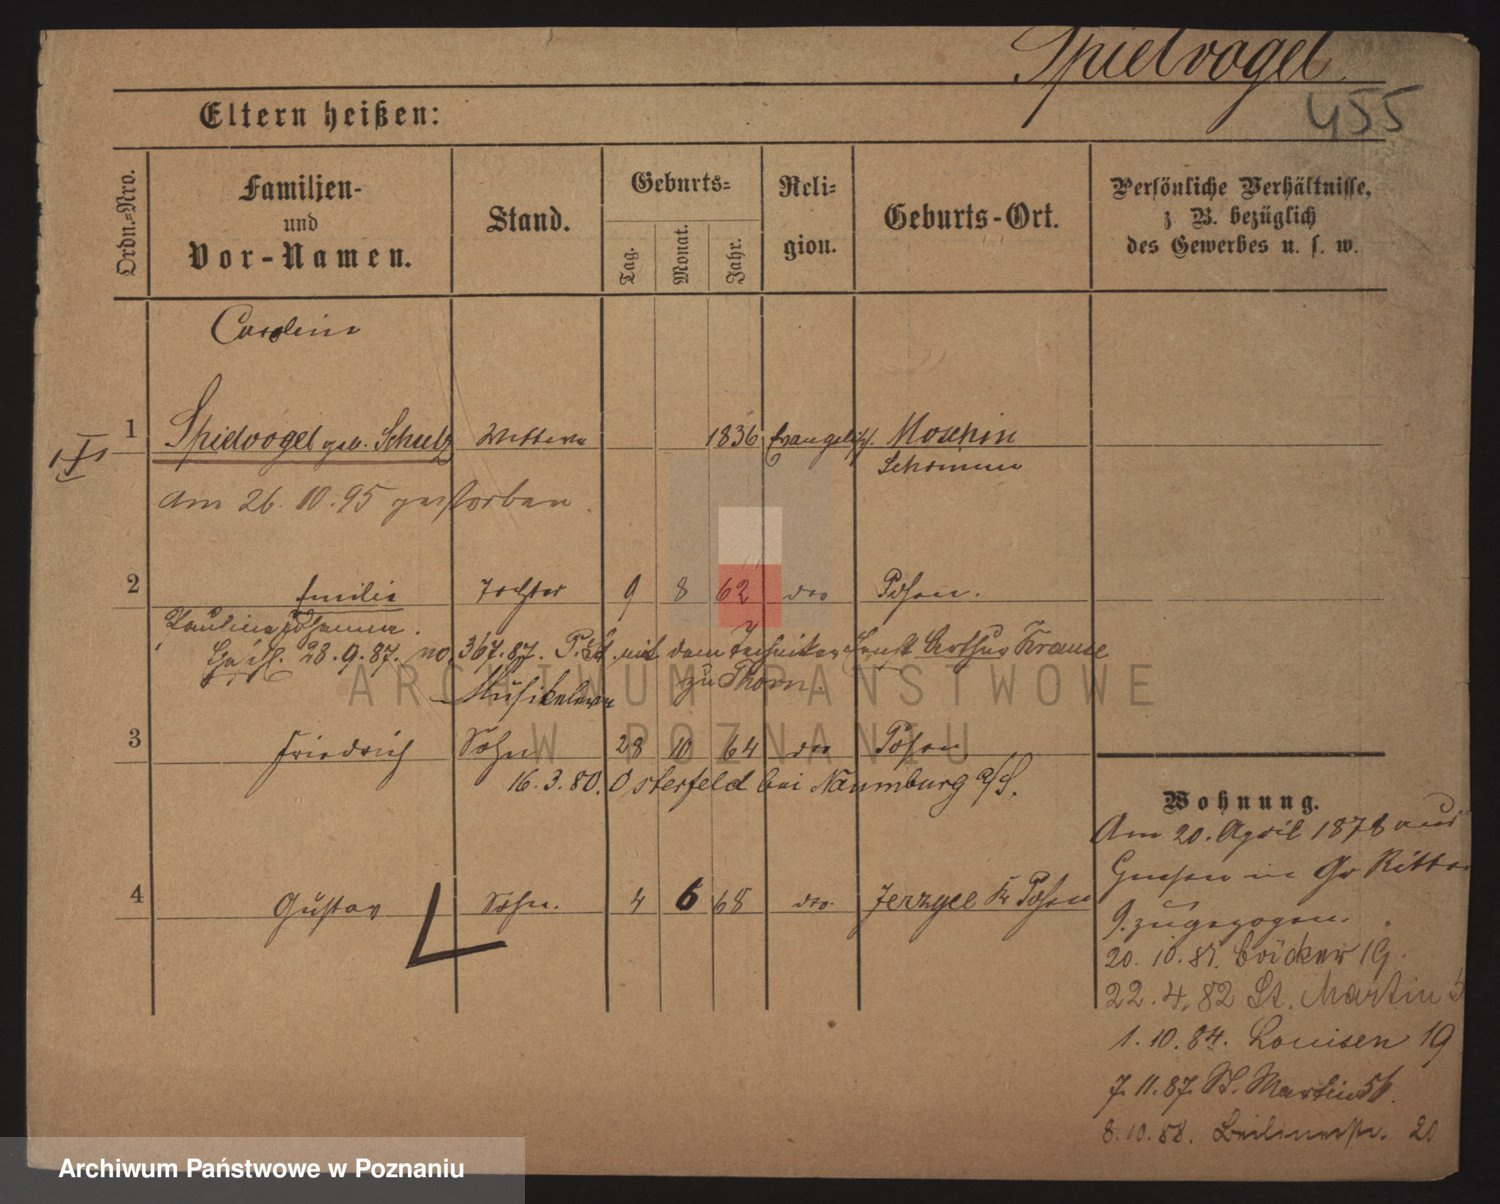 Spielvogel
455
Eltern heißen:
Ordn.=Nro.
Familien-
und
Vor-Namen.
Stand.
Geburts=
Tag.
Monat.
Jahr.
Reli=
gion.
Geburts-Ort.
Persönliche Verhältnisse,
z. B. bezüglich
des Gewerbes u. s. w.
Caroline
1 Spielvogel geb. Schulz Wittwe 1836 Evangelisch. Moschin
Schrimm
am 26. 10. 95 gestorben.
2 Emilie Tochter 9 8 62 dto Posen.
Pauline Johanna.
Gesch. 28.9.87. no 367.87. P. St. mit dem Techniker Ernst Arthur Krause
zu Thorn.
3 Friedrich Sohn 28 10 64 dto Posen
16.3.80. Osterfeld bei Naumburg a/S.
4 Gustav Sohn. 4 6 68 dto. Jerzyce Kr Posen
Wohnung.
Am 20. April 1878 aus
Gnesen in Gr Ritter
9. zugezogen.
20. 10. 81. Bäcker 19.
22. 4. 82 St. Martin
1. 10. 84. Louisen 19
7. 11. 87. St. Martin 56.
8. 10. 88. Berlinerstr. 20
ARCHIWUM PAŃSTWOWE
W POZNANIU
Archiwum Państwowe w Poznaniu